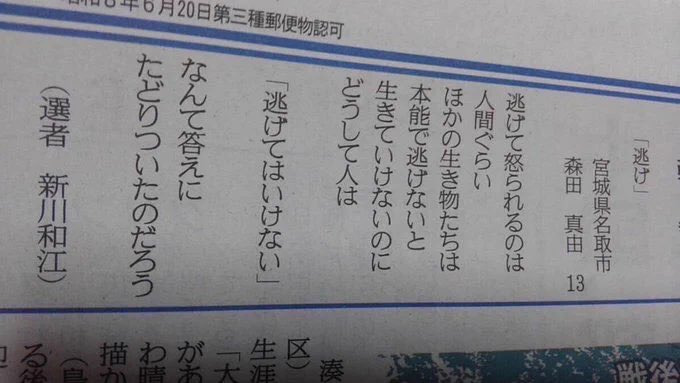 昭和8年6月20日第三種郵便物認可
「逃げ」
宮城県名取市
森田 真由 13
逃げて怒られるのは
人間ぐらい
ほかの生き物たちは
本能で逃げないと
生きていけないのに
どうして人は
「逃げてはいけない」
なんて答えに
たどりついたのだろう
（選者 新川和江）
戦後
湊
区）
生涯
「大
があ
わ晴
描か
る後